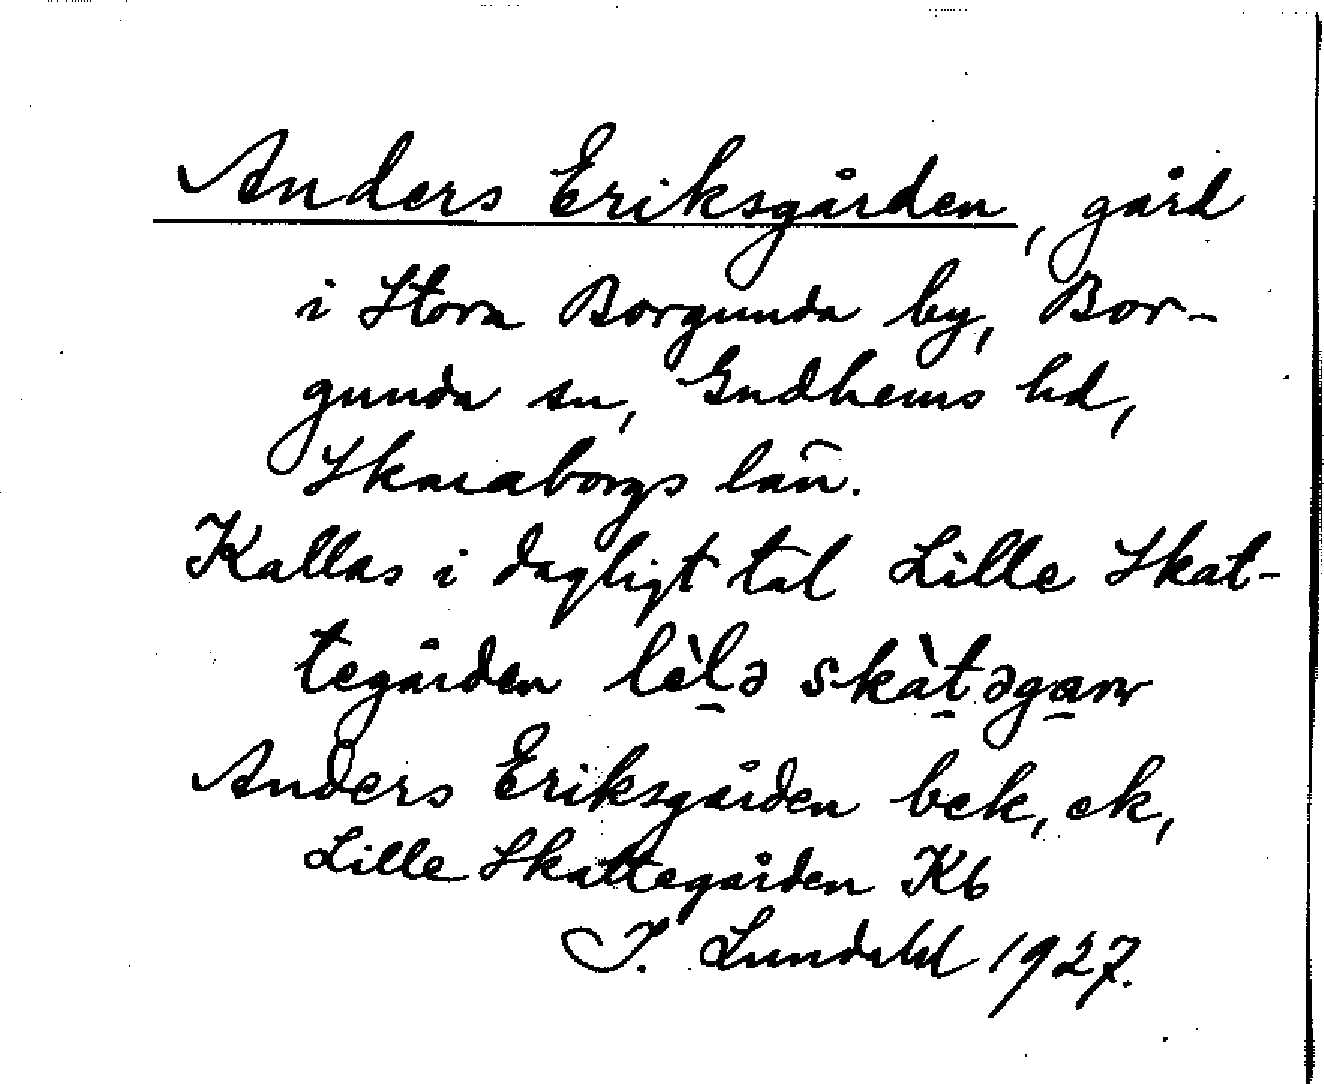 Anders Eriksgården, gård
i Stora Borgunda by, Bor-
gunda sn, Gudhems hd,
Skaraborgs län.
Kallas i dagligt tal Lille Skat-
tegården lèlə skàtəgaɳ
Anders Eriksgården bek, ek,
Lille Skattegården Kb
I. Lundahl 1927.